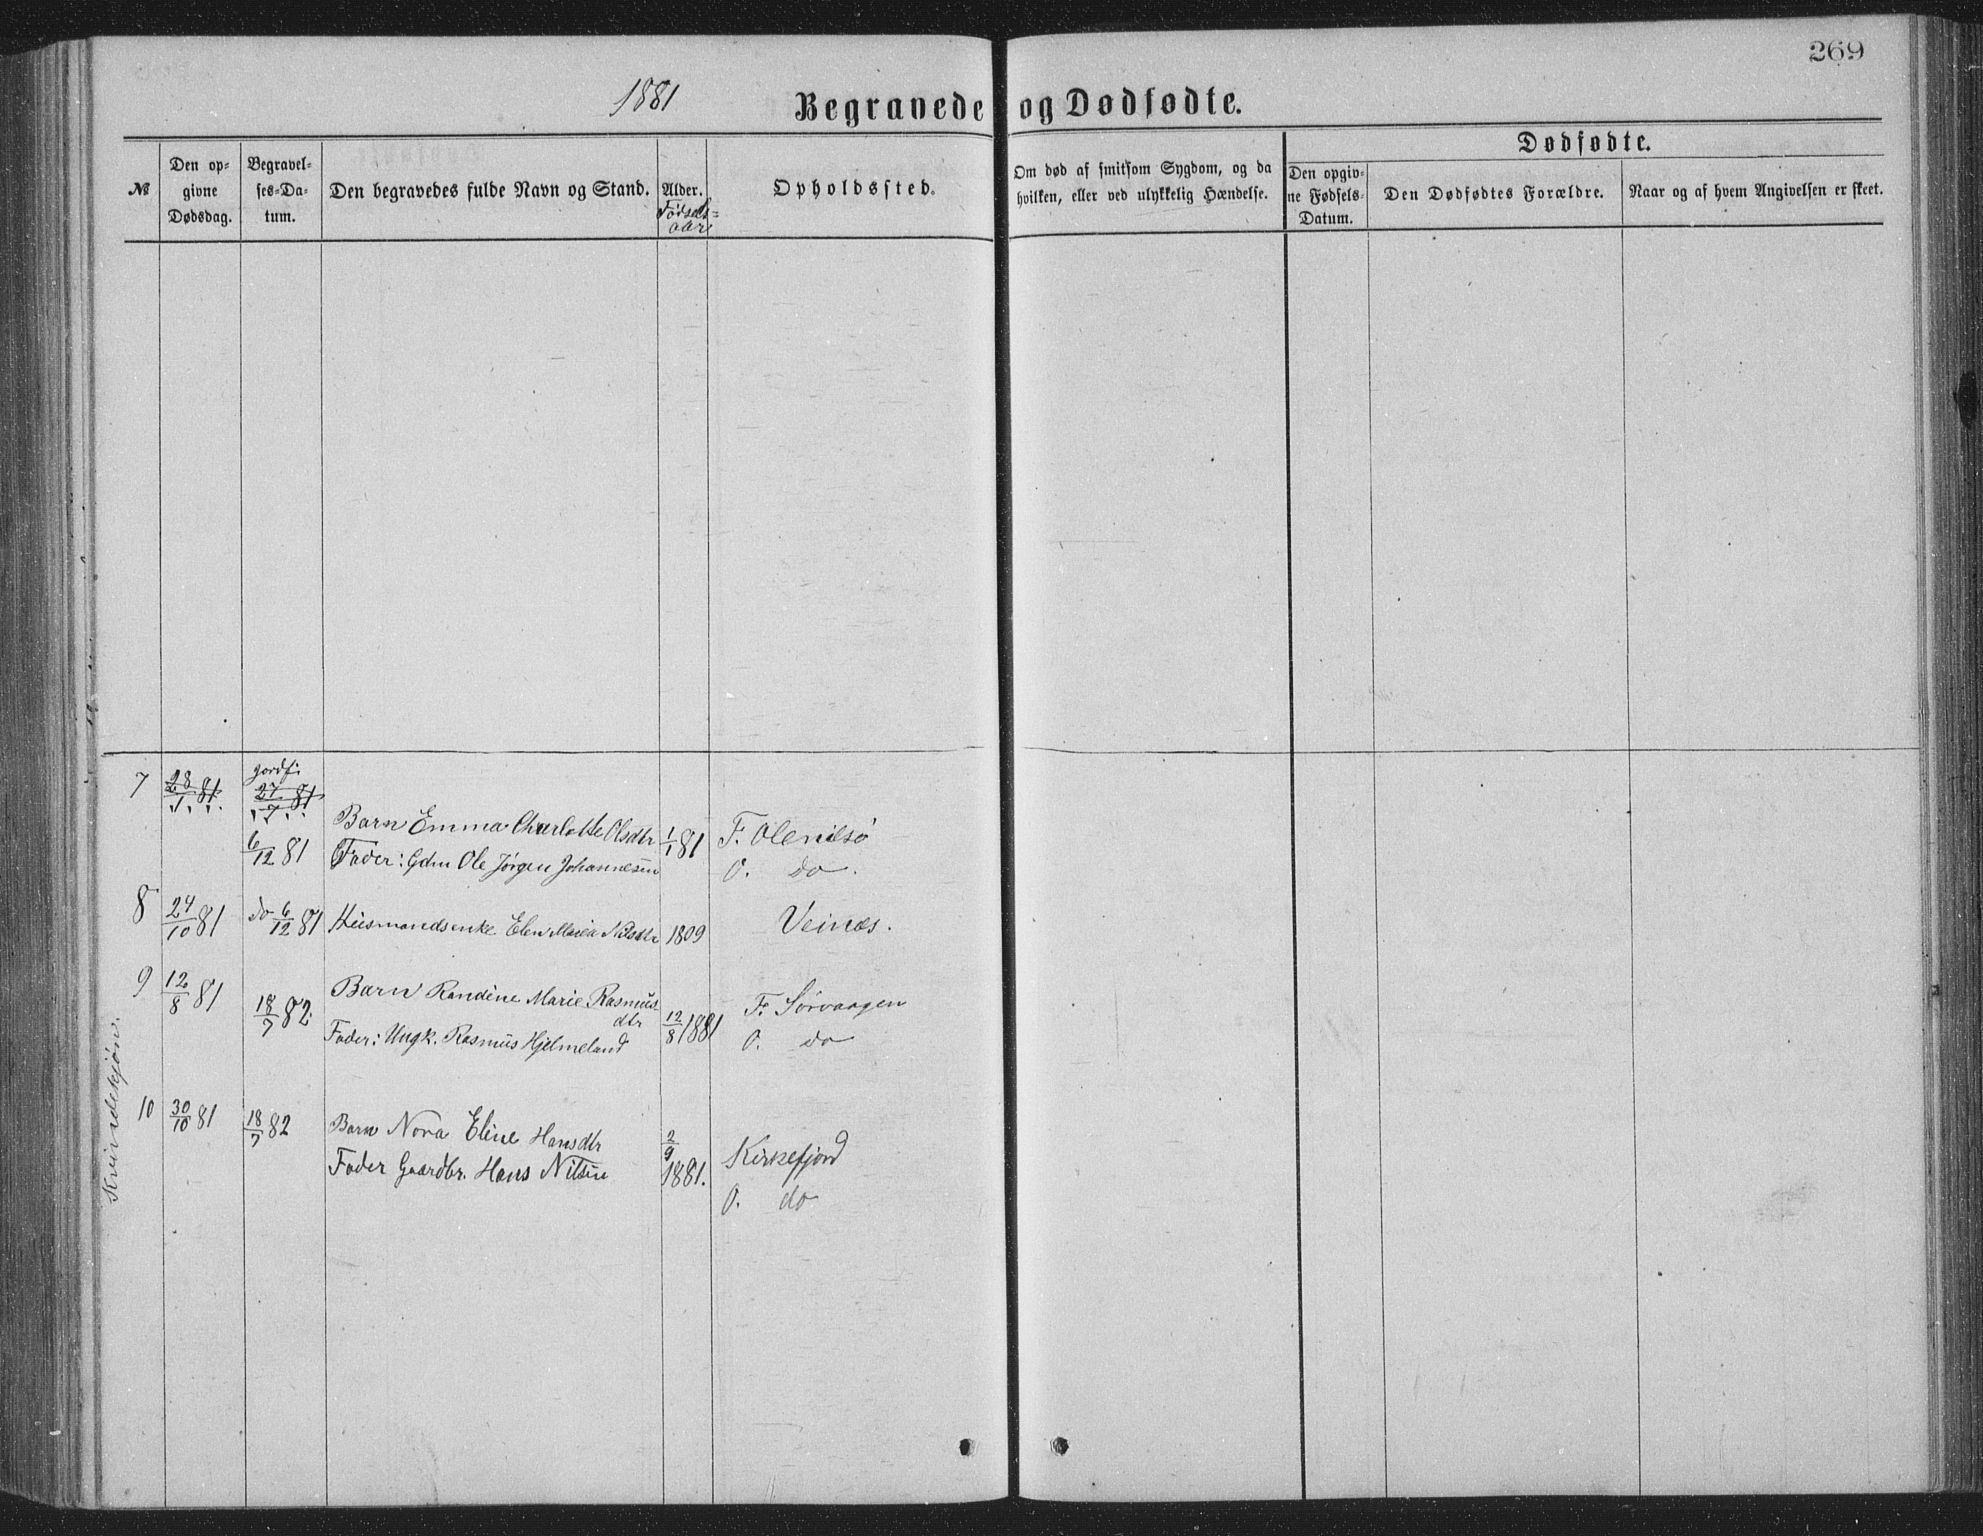 269
1881
Begravede og Dødfødte.
Dødfødte.
No
Den op-
givne
Dødsdag.
Begravel-
ses-Da-
tum.
Den begravedes fulde Navn og Stand.
Alder.
Fødsels-
aar
Opholdssted.
Om død af smitsom Sygdom, og da
hvilken, eller ved ulykkelig Hændelse.
Den opgiv-
ne Fødsels-
Datum.
Den Dødfødtes Forældre.
Naar og af hvem Angivelsen er skeet.
7 28/1 81. jordf. 27/7 81
6/12 81
Barn Emma Charlotte Olsdtr 1/1 81 F. Olenilsö
Fader: Gdm Ole Jørgen Johannesen O. do.
8 24/10 81 do 6/12 81 Huusmandsenke Elen Maria Nilsdtr 1809 Veinæs.
9 12/8 81 18/7 82. Barn Randine Marie Rasmus-
dtr 12/8 1881 F. Sörvaagen
Fader: Ungk. Rasmus Hjelmeland O. do
10 30/10 81 18/7 82 Barn Nora Eline Hansdtr 2/9
1881. Kirkefjord
Fader Gaardbr. Hans Nilsen
O. do
Kvindekjön.